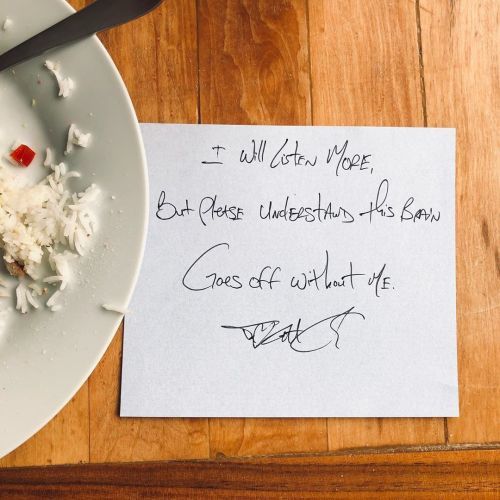 I Will Listen More,
But Please Understand this Brain
Goes off without Me.